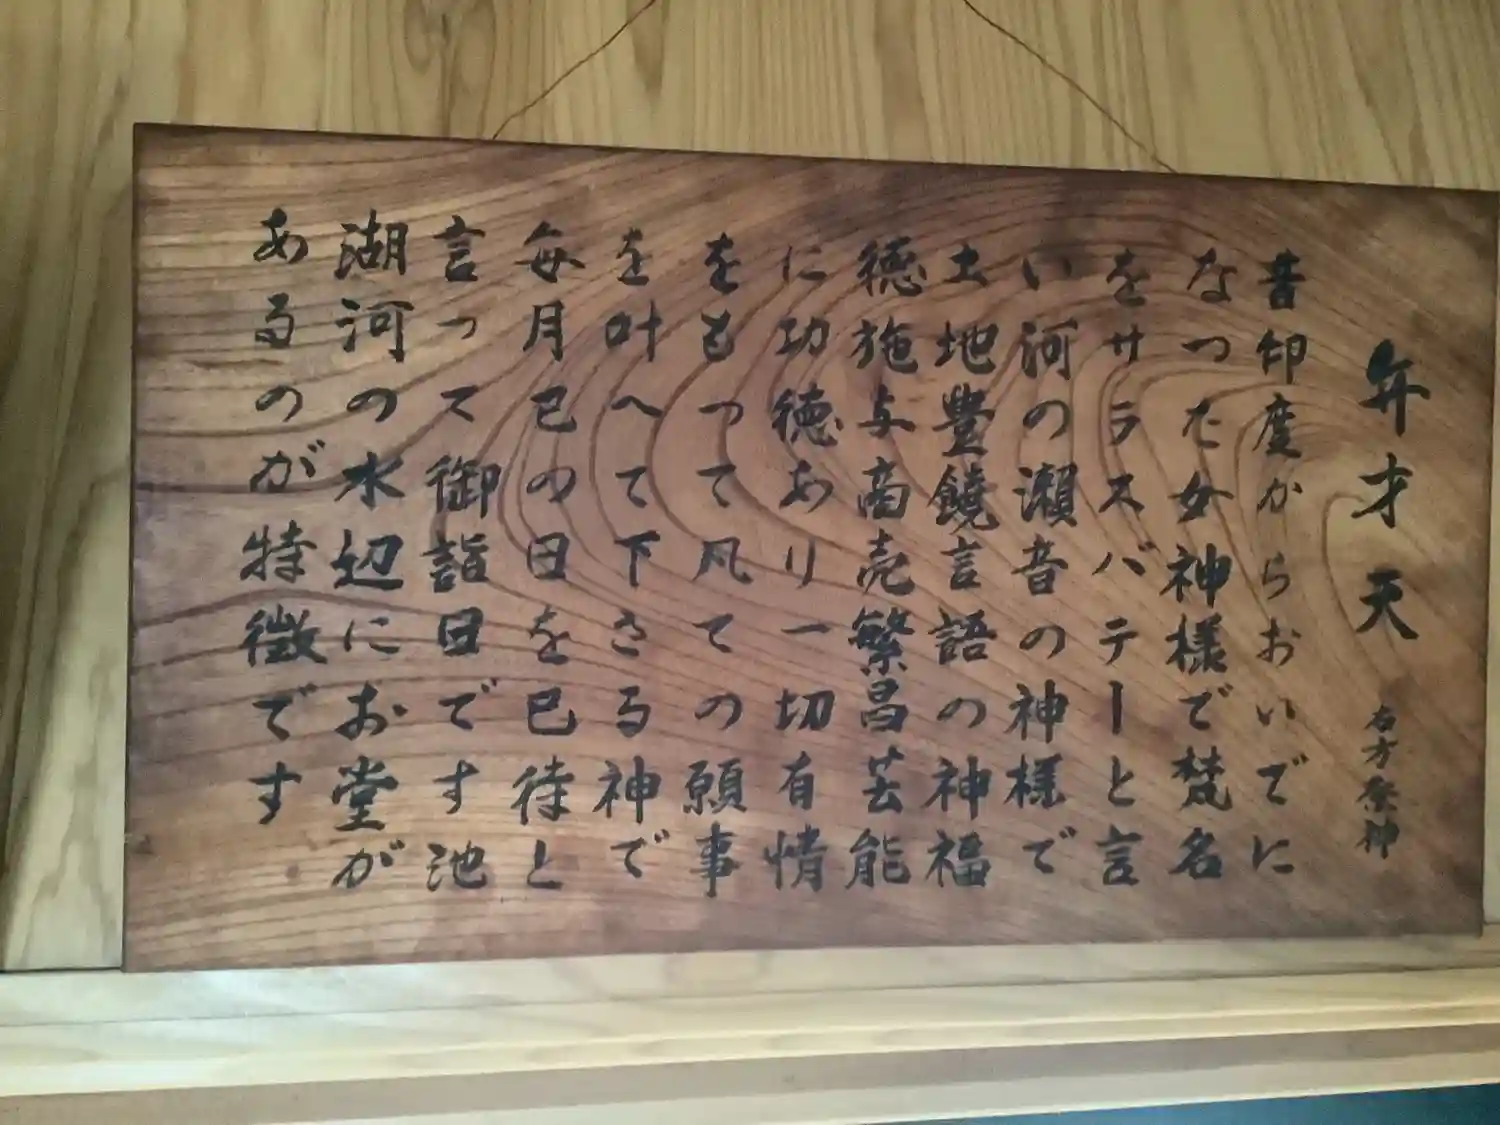 弁才天 右方祭神
昔印度からおいでに
なった女神様で梵名
をサラスバテーと言
い河の瀬音の神様で
土地豊鐃言語の神福
徳施与商売繁昌芸能
に功徳あり一切有情
をもって凡ての願事
を叶へて下さる神で
毎月巳の日を巳待と
言って御詣日です池
湖河の水辺にお堂が
あるのが特徴です